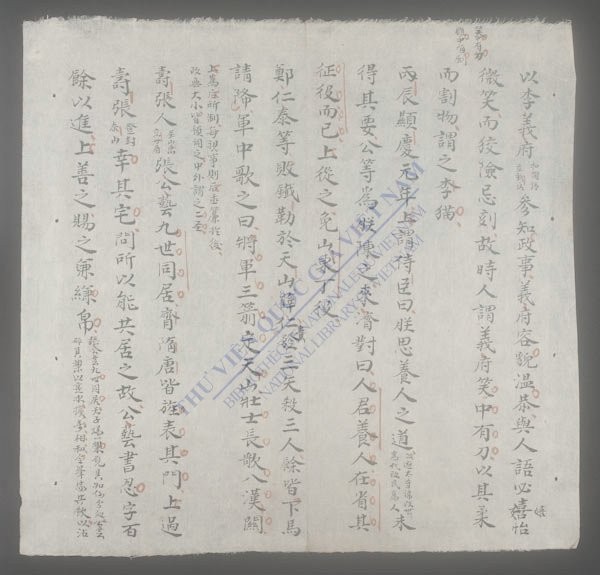 以李義府參知政事義府容貌溫恭與人語必嬉怡
微笑而狡險忌刻故時人謂義府笑中有刀以其柔
而害物謂之李猫
丙辰顯慶元年上謂侍臣曰朕思養人之道未
得其要公等爲朕陳之來濟對曰人君養人在省其
征役而已上從之免山東丁役
鄭仁泰等敗鐵勒於天山薛仁貴發三矢殺三人餘皆下馬
請降軍中歌之曰將軍三箭定天山壯士長歌入漢關
上每視事則后垂簾於後
政無大小皆預聞之中外謂之二聖
壽張人張公藝九世同居齊隋唐皆旌表其門上過
壽張幸其宅問所以能共居之故公藝書忍字百
餘以進上善之賜之縑帛
THƯ VIỆN QUỐC GIA VIỆT NAM
BIBLIOTHÈQUE NATIONALE DU VIETNAM
NATIONAL LIBRARY OF VIETNAM